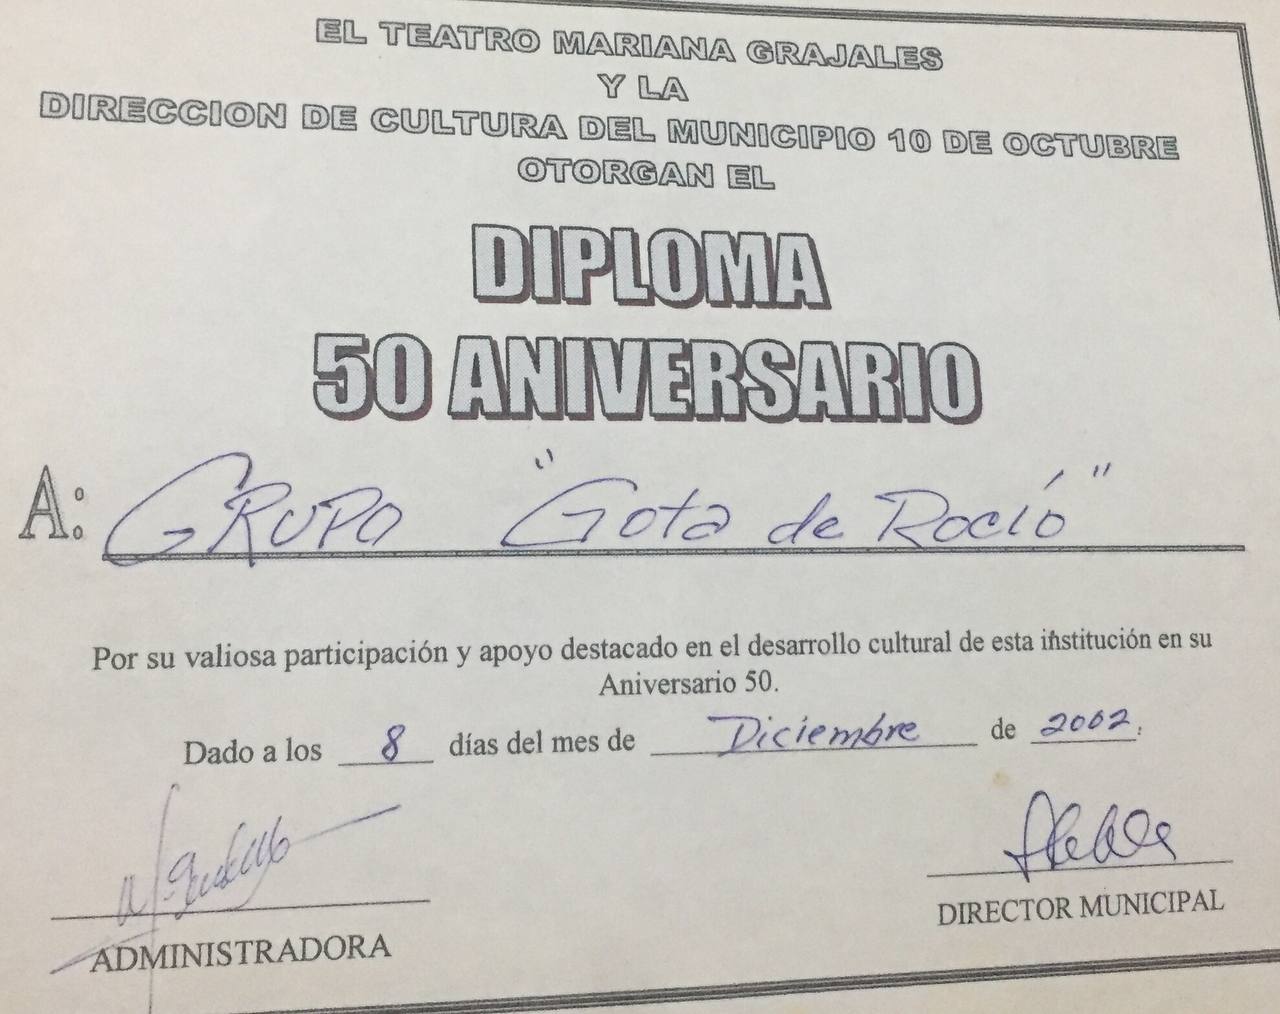 EL TEATRO MARIANA GRAJALES
Y LA
DIRECCION DE CULTURA DEL MUNICIPIO 10 DE OCTUBRE
OTORGAN EL
DIPLOMA
50 ANIVERSARIO
A: GRUPO "Gota de Rocío"
Por su valiosa participación y apoyo destacado en el desarrollo cultural de esta institución en su
Aniversario 50.
Dado a los 8 días del mes de Diciembre de 2002.
ADMINISTRADORA
DIRECTOR MUNICIPAL